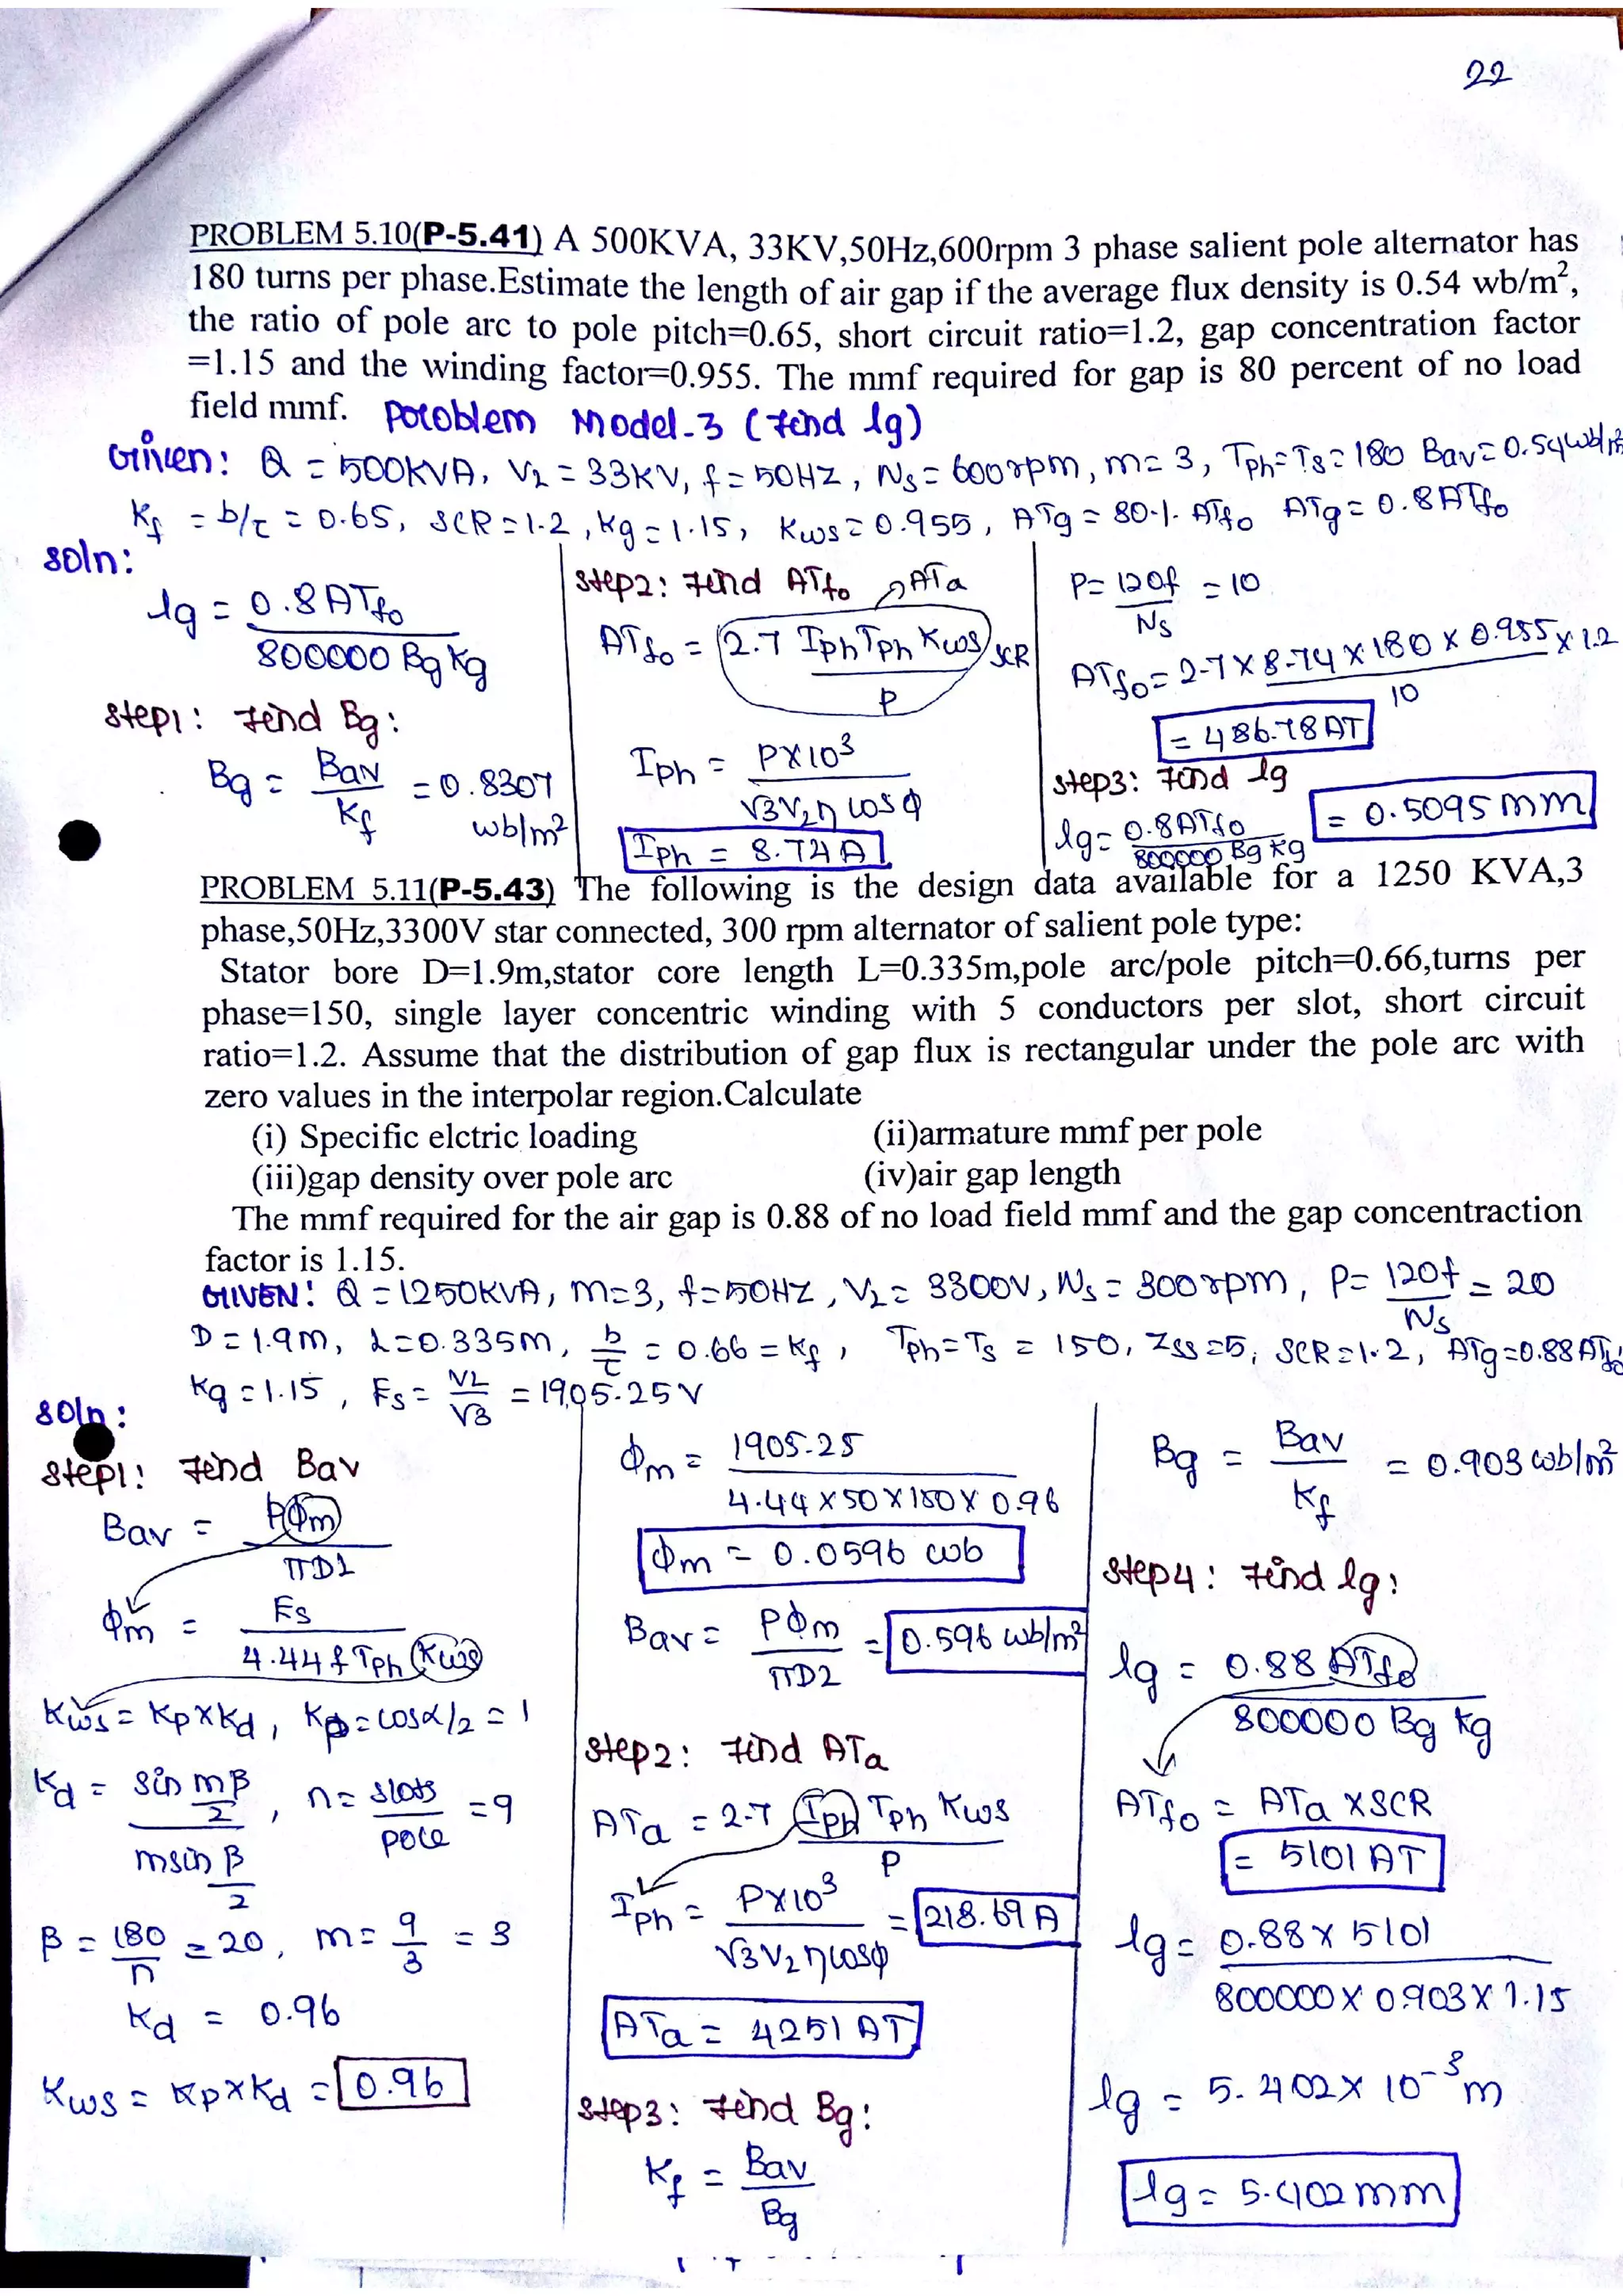 22
PROBLEM 5.10(P-5.41) A 500KVA, 33KV,50Hz,600rpm 3 phase salient pole alternator has
180 turns per phase.Estimate the length of air gap if the average flux density is 0.54 wb/m²,
the ratio of pole arc to pole pitch=0.65, short circuit ratio=1.2, gap concentration factor
=1.15 and the winding factor=0.955. The mmf required for gap is 80 percent of no load
field mmf. Problem Model-3 (Find lg)
Given: Q = 500KVA, VL = 33KV, f = 50HZ, Ns = 600rpm, m = 3, Tph = Ts = 180 Bav = 0.54wb/m²
Kf = b/τ = 0.65, SCR = 1.2, Kg = 1.15, Kws = 0.955, ATg = 80·/. ATfo ATg = 0.8ATfo
soln:
lg = 0.8ATfo / 800000 Bg Kg
step1: Find Bg:
Bg = Bav / Kf = 0.8307 wb/m²
step2: Find ATfo
ATa
ATfo = (2.7 Iph Tph Kws / P) SCR
Iph = P×10³ / √3 VL η cosϕ
Iph = 8.74 A
P = 120f / Ns = 10
ATfo = 2.7 × 8.74 × 180 × 0.955 × 1.2 / 10
= 486.78 AT
step3: Find lg
lg = 0.8ATfo / 800000 Bg Kg = 0.5095 mm
PROBLEM 5.11(P-5.43) The following is the design data available for a 1250 KVA,3
phase,50Hz,3300V star connected, 300 rpm alternator of salient pole type:
Stator bore D=1.9m,stator core length L=0.335m,pole arc/pole pitch=0.66,turns per
phase=150, single layer concentric winding with 5 conductors per slot, short circuit
ratio=1.2. Assume that the distribution of gap flux is rectangular under the pole arc with
zero values in the interpolar region.Calculate
(i) Specific elctric loading (ii)armature mmf per pole
(iii)gap density over pole arc (iv)air gap length
The mmf required for the air gap is 0.88 of no load field mmf and the gap concentraction
factor is 1.15.
GIVEN: Q = 1250KVA, m = 3, f = 50HZ, VL = 3300V, Ns = 300rpm, P = 120f / Ns = 20
D = 1.9m, L = 0.335m, b/τ = 0.66 = Kf, Tph = Ts = 150, Zss = 5, SCR = 1.2, ATg = 0.88 ATfo
Kg = 1.15, Es = VL / √3 = 1905.25 V
soln:
step1: Find Bav
Bav = Pϕm / πDL
ϕm = Es / 4.44 f Tph Kws
Kws = Kp×Kd, Kp = cosα/2 = 1
Kd = sin mβ/2 / m sin β/2, n = slots / pole = 9
β = 180 / n = 20, m = 9/3 = 3
Kd = 0.96
Kws = Kp×Kd = 0.96
ϕm = 1905.25 / 4.44 × 50 × 150 × 0.96
ϕm = 0.0596 wb
Bav = Pϕm / πDL = 0.596 wb/m²
step2: Find ATa
ATa = 2.7 Iph Tph Kws / P
Iph = P×10³ / √3 VL η cosϕ = 218.69 A
ATa = 4251 AT
step3: Find Bg:
Kf = Bav / Bg
Bg = Bav / Kf = 0.903 wb/m²
step4: Find lg:
lg = 0.88 ATfo / 800000 Bg Kg
ATfo = ATa × SCR
= 5101 AT
lg = 0.88 × 5101 / 800000 × 0.903 × 1.15
lg = 5.402 × 10⁻³ m
lg = 5.402 mm